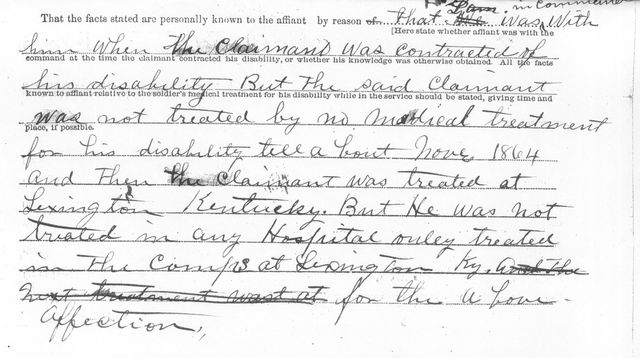 I am in Command
That the facts stated are personally known to the affiant by reason of That He was with
[Here state whether affiant was with the
him when the Claimant was contracted of
command at the time the claimant contracted his disability, or whether his knowledge was otherwise obtained. All the facts
his disability But The said Claimant
known to affiant relative to the soldier's medical treatment for his disability while in the service should be stated, giving time and
was not treated by no Medical treatment
place, if possible.
for his disability tell a bout Nove, 1864
and Then the Claimant was treated at
Lexington Kentucky. But He was not
treated in any Hospital onley treated
in The Camps at Lexington Ky. and the
next treatment wast at for the a bove
affection,